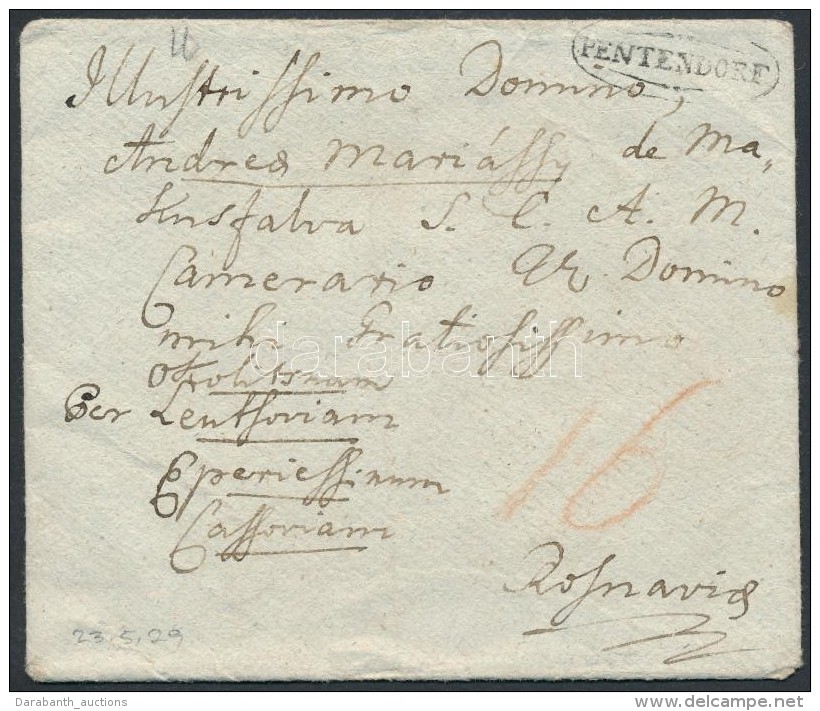 16
PENTENDORF
Illustrissimo Domino,
Andreæ Mariássy de Ma,
kusfalva S. C. A. M.
Camerario Domino
mihi Gratiosissimo
darabanth
Per Leutsoviam
Eperiessinum
Cassoviam
16
Rosnaviæ
23.5.29
Darabanth_auctions
www.delcampe.net